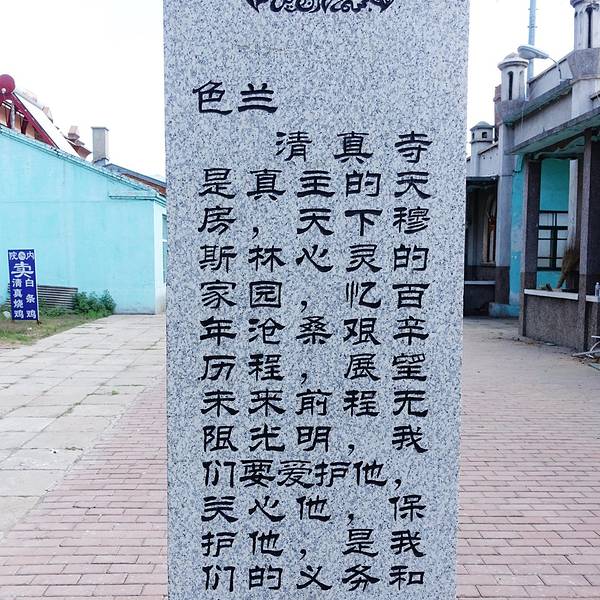 色兰
清真寺
是真主的天
房，天下穆
斯林心灵的
家园，忆百
年沧桑艰辛
历程，展望
未来前程无
限光明，我
们要爱护他，
关心他，保
护他，是我
们的义务和
院内
卖
白条鸡
清真烧鸡